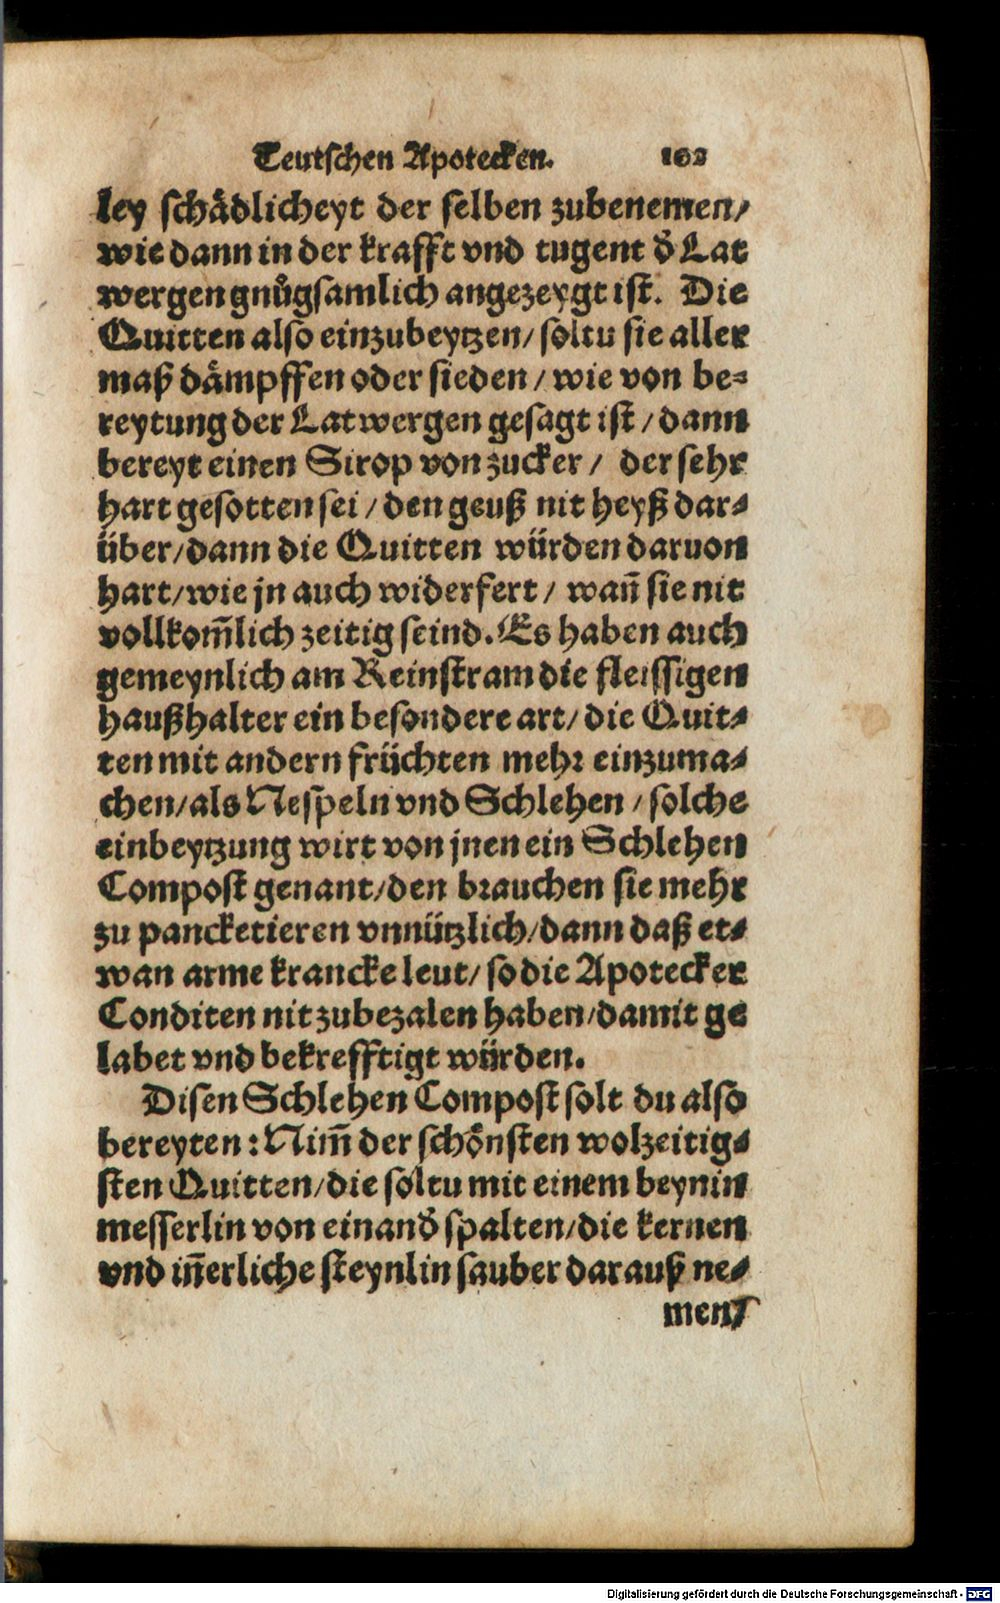 Teutschen Apotecken. 102
ley schådlicheyt der selben zubenemen/
wie dann in der krafft vnd tugent d̓ Lat
wergen gnůgsamlich angezeygt ist. Die
Quitten also einzubeytzen/ soltu sie aller
maß dåmpffen oder sieden/ wie von be⸗
reytung der Latwergen gesagt ist/ dann
bereyt einen Sirop von zucker/ der sehr
hart gesotten sei/ den geuß nit heyß dar⸗
über/ dann die Quitten würden daruon
hart/ wie jn auch widerfert/ wañ sie nit
vollkom̃lich zeitig seind. Es haben auch
gemeynlich am Reinstram die fleissigen
haußhalter ein besondere art/ die Quit⸗
ten mit andern früchten mehr einzuma⸗
chen/ als Nespeln vnd Schlehen/ solche
einbeytzung wirt von jnen ein Schlehen
Compost genant/ den brauchen sie mehr
zu pancketieren vnnützlich/ dann daß et⸗
wan arme krancke leut/ so die Apotecker
Conditen nit zubezalen haben/ damit ge
labet vnd bekrefftigt würden.
Disen Schlehen Compost solt du also
bereyten: Nim̃ der schönsten wolzeitig⸗
sten Quitten/ die soltu mit einem beynin
messerlin von einand̓ spalten/ die kernen
vnd iñerliche steynlin sauber darauß ne⸗
men/
Digitalisierung gefördert durch die Deutsche Forschungsgemeinschaft - DFG